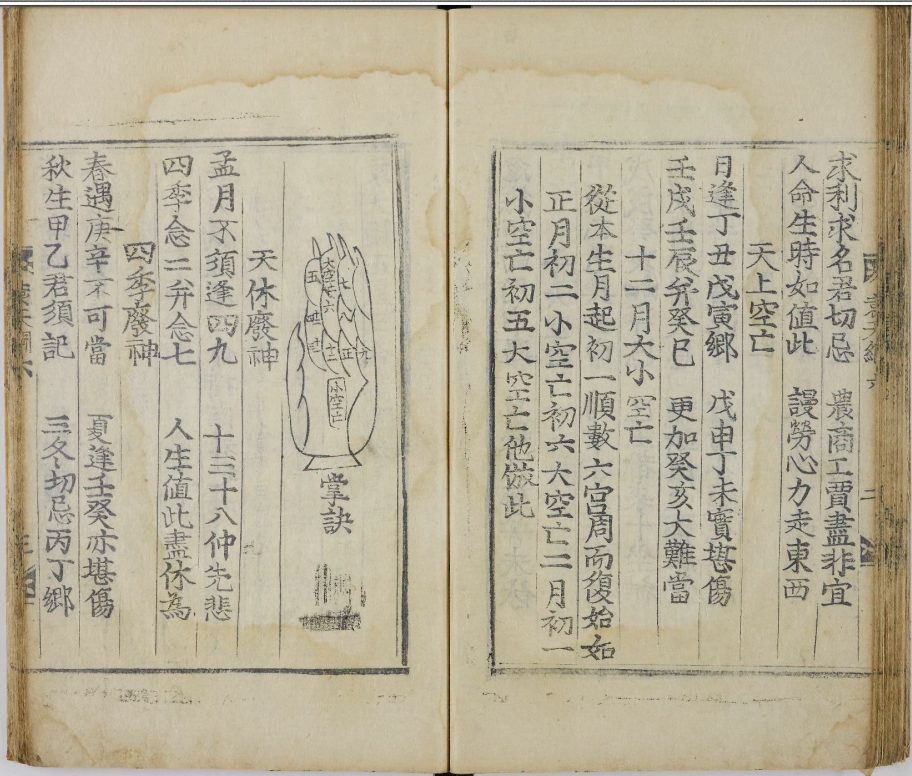 求利求名君切忌 農商工賈盡非宜
人命生時如值此 謾勞心力走東西
天上空亡
日逢丁丑戊寅鄉 戊申丁未實堪傷
壬戌壬辰并癸巳 更加癸亥大難當
十二月大小空亡
從本生月起初一順數六宮周而復始如
正月初二小空亡初六大空亡二月初一
小空亡初五大空亡他倣此
掌訣
小空亡
天休廢神
孟月不須逢四九 十三十八仲先悲
四季念二并念七 人生值此盡休為
四季廢神
春遇庚辛不可當 夏逢壬癸亦堪傷
秋生甲乙君須記 三冬切忌丙丁鄉